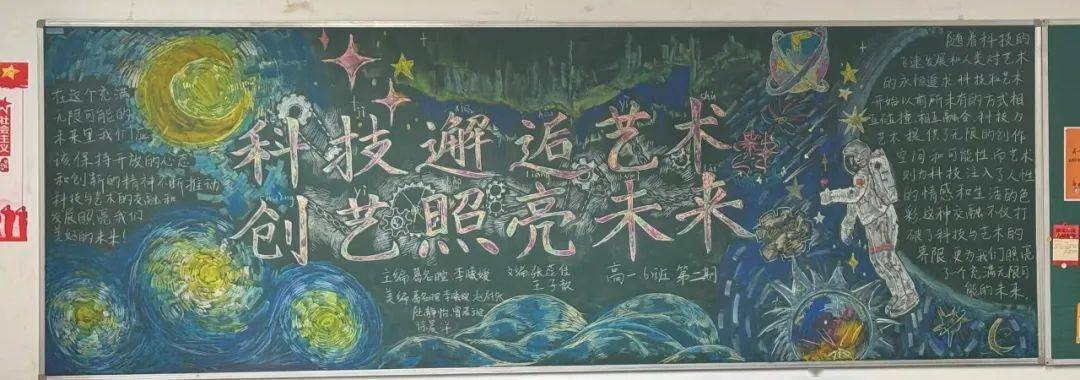 社会主义
在这个充满
无限可能的
未来里我们应
该保持开放的心态
和创新的精神不断推动
科技与艺术的交融和
发展照亮我们
美好的未来!
科技邂逅艺术
创艺照亮未来
主编
李曦媛
文编 张蕊佳
王子毅
美编
高一6班 第二期
随着科技的
飞速发展和人类对艺术
的永恒追求,科技和艺术
开始以前所未有的方式相
互碰撞,相互融合.科技为
艺术提供了无限的创作
空间和可能性而艺术
则为科技注入了人性
的情感和生活的色
彩.这种交融不仅打
破了科技与艺术的
界限 更为我们照亮
了一个充满无限可
能的未来.